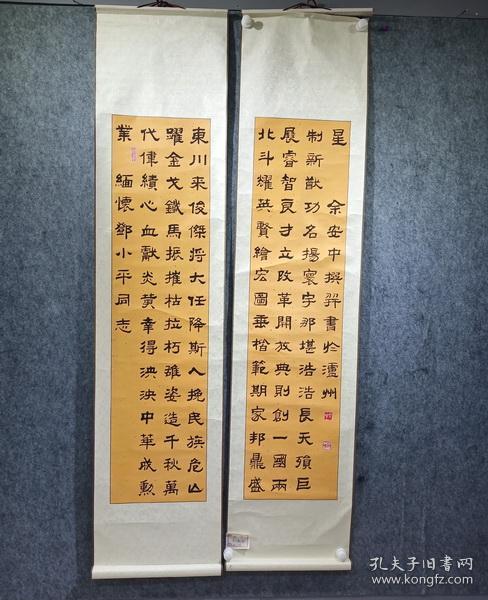 東川來俊傑將大任降斯人挽民族危亡
躍金戈鐵馬振摧枯拉朽雄姿造千秋萬
代偉績心血獻炎黃幸得泱泱中華成勳
業 緬懷鄧小平同志
北斗耀英賢繪宏圖垂楷範期家邦鼎盛
展睿智良才立改革開放典則創一國兩
制新猷功名揚寰宇那堪浩浩長天殞巨
星 余安中撰并書於瀘州
孔夫子旧書网
www.kongfz.com